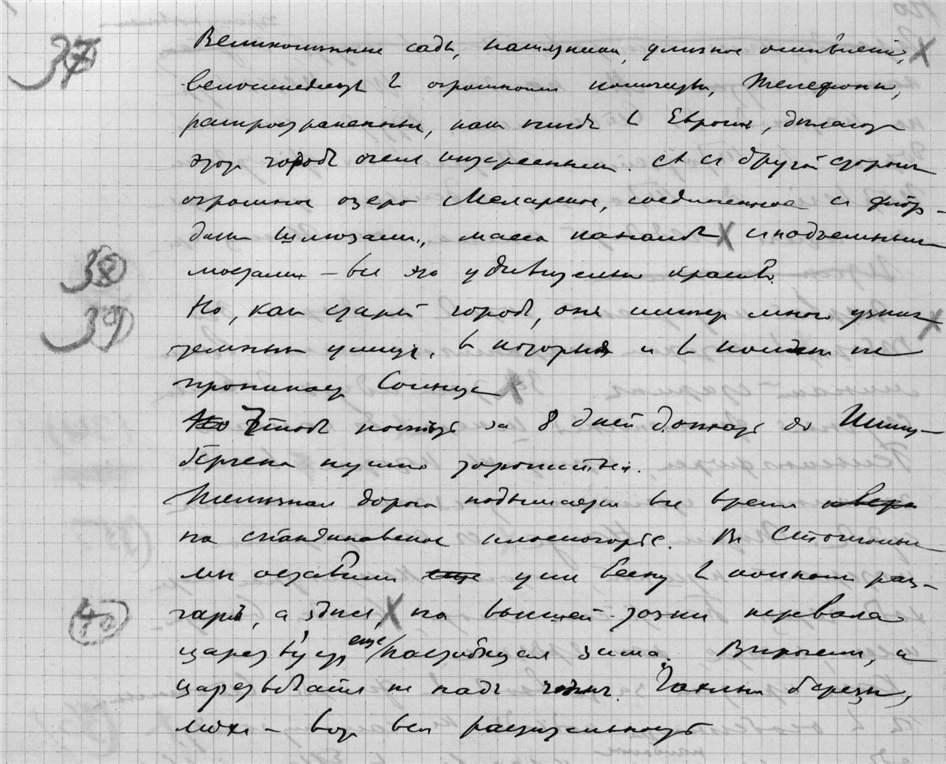 37 Великолѣпные сады, памятники, уличное оживленіе,
велосипедисты въ огромномъ количествѣ, телефоны,
распространенные, какъ нигдѣ въ Европѣ, дѣлаютъ
этотъ городъ очень интереснымъ. А съ другой стороны
огромное озеро Меларское, соединенное съ фіор-
дами шлюзами, масса каналовъ съ подъемными
38 мостами – все это удивительно красиво.
39 Но, какъ старый городъ, онъ имѣетъ много узкихъ
темныхъ улицъ, въ которыя и въ полдень не
проникаетъ Солнце
Но Чтобы поспѣть за 8 дней доѣхать до Шпиц-
бергена нужно торопиться.
Желѣзная дорога подымается все время вверхъ
на скандинавское плоскогорье. Въ Стокгольмѣ
мы оставили еще уже весну въ полномъ раз-
40 гарѣ, а здѣсь, на высшей точкѣ перевала
царствуетъ еще настоящая зима. Впрочемъ, и
царствовать не надъ чѣмъ. Чахлыя березы,
мохъ – вотъ вся растительность